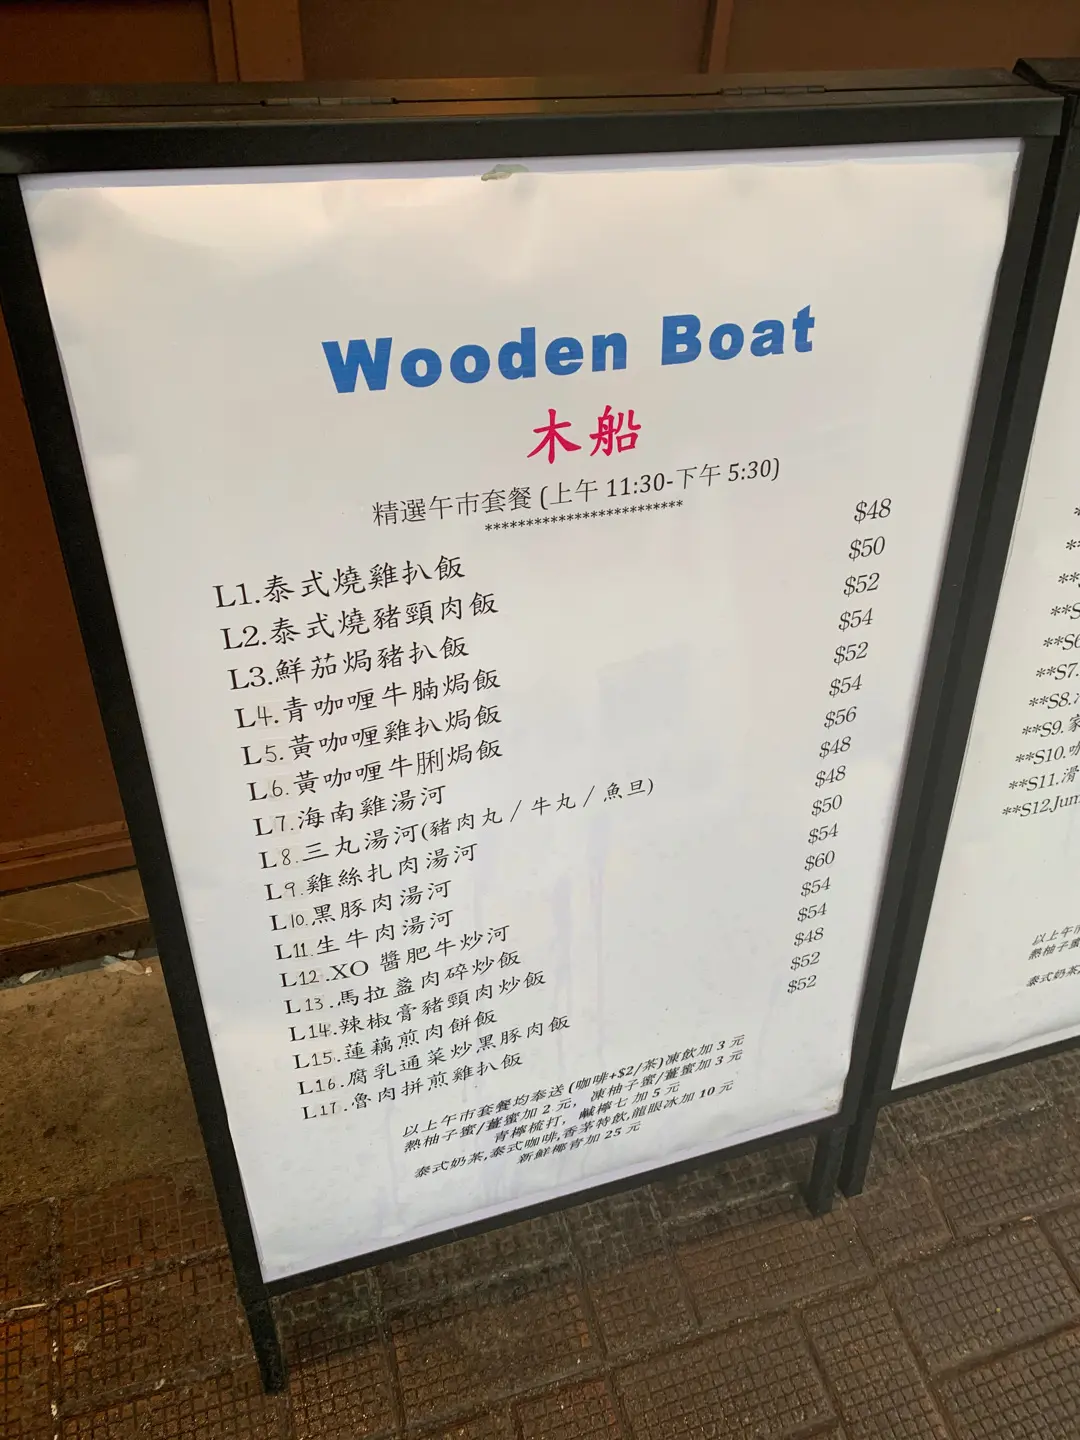 Wooden Boat
木船
精選午市套餐 (上午 11:30-下午 5:30)
*************************
L1.泰式燒雞扒飯 $48
L2.泰式燒豬頸肉飯 $50
L3.鮮茄焗豬扒飯 $52
L4.青咖喱牛腩焗飯 $54
L5.黃咖喱雞扒焗飯 $52
L6.黃咖喱牛脷焗飯 $54
L7.海南雞湯河 $56
L8.三丸湯河(豬肉丸 / 牛丸 / 魚旦) $48
L9.雞絲扎肉湯河 $48
L10.黑豚肉湯河 $50
L11.生牛肉湯河 $54
L12.XO 醬肥牛炒河 $60
L13.馬拉盞肉碎炒飯 $54
L14.辣椒膏豬頸肉炒飯 $54
L15.蓮藕煎肉餅飯 $48
L16.腐乳通菜炒黑豚肉飯 $52
L17.魯肉拼煎雞扒飯 $52
以上午市套餐均奉送 (咖啡+$2/茶)凍飲加 3 元
熱柚子蜜/薑蜜加 2 元, 凍柚子蜜/薑蜜加 3 元
青檸梳打, 鹹檸七 加 5 元
泰式奶茶,泰式咖啡,香茅特飲,龍眼冰加 10 元
新鮮椰青加 25 元
**S6
**S7.
**S8.
**S9.家
**S10.咖
**S11.滑
**S12.Jum
以上午
熱柚子蜜
泰式奶茶